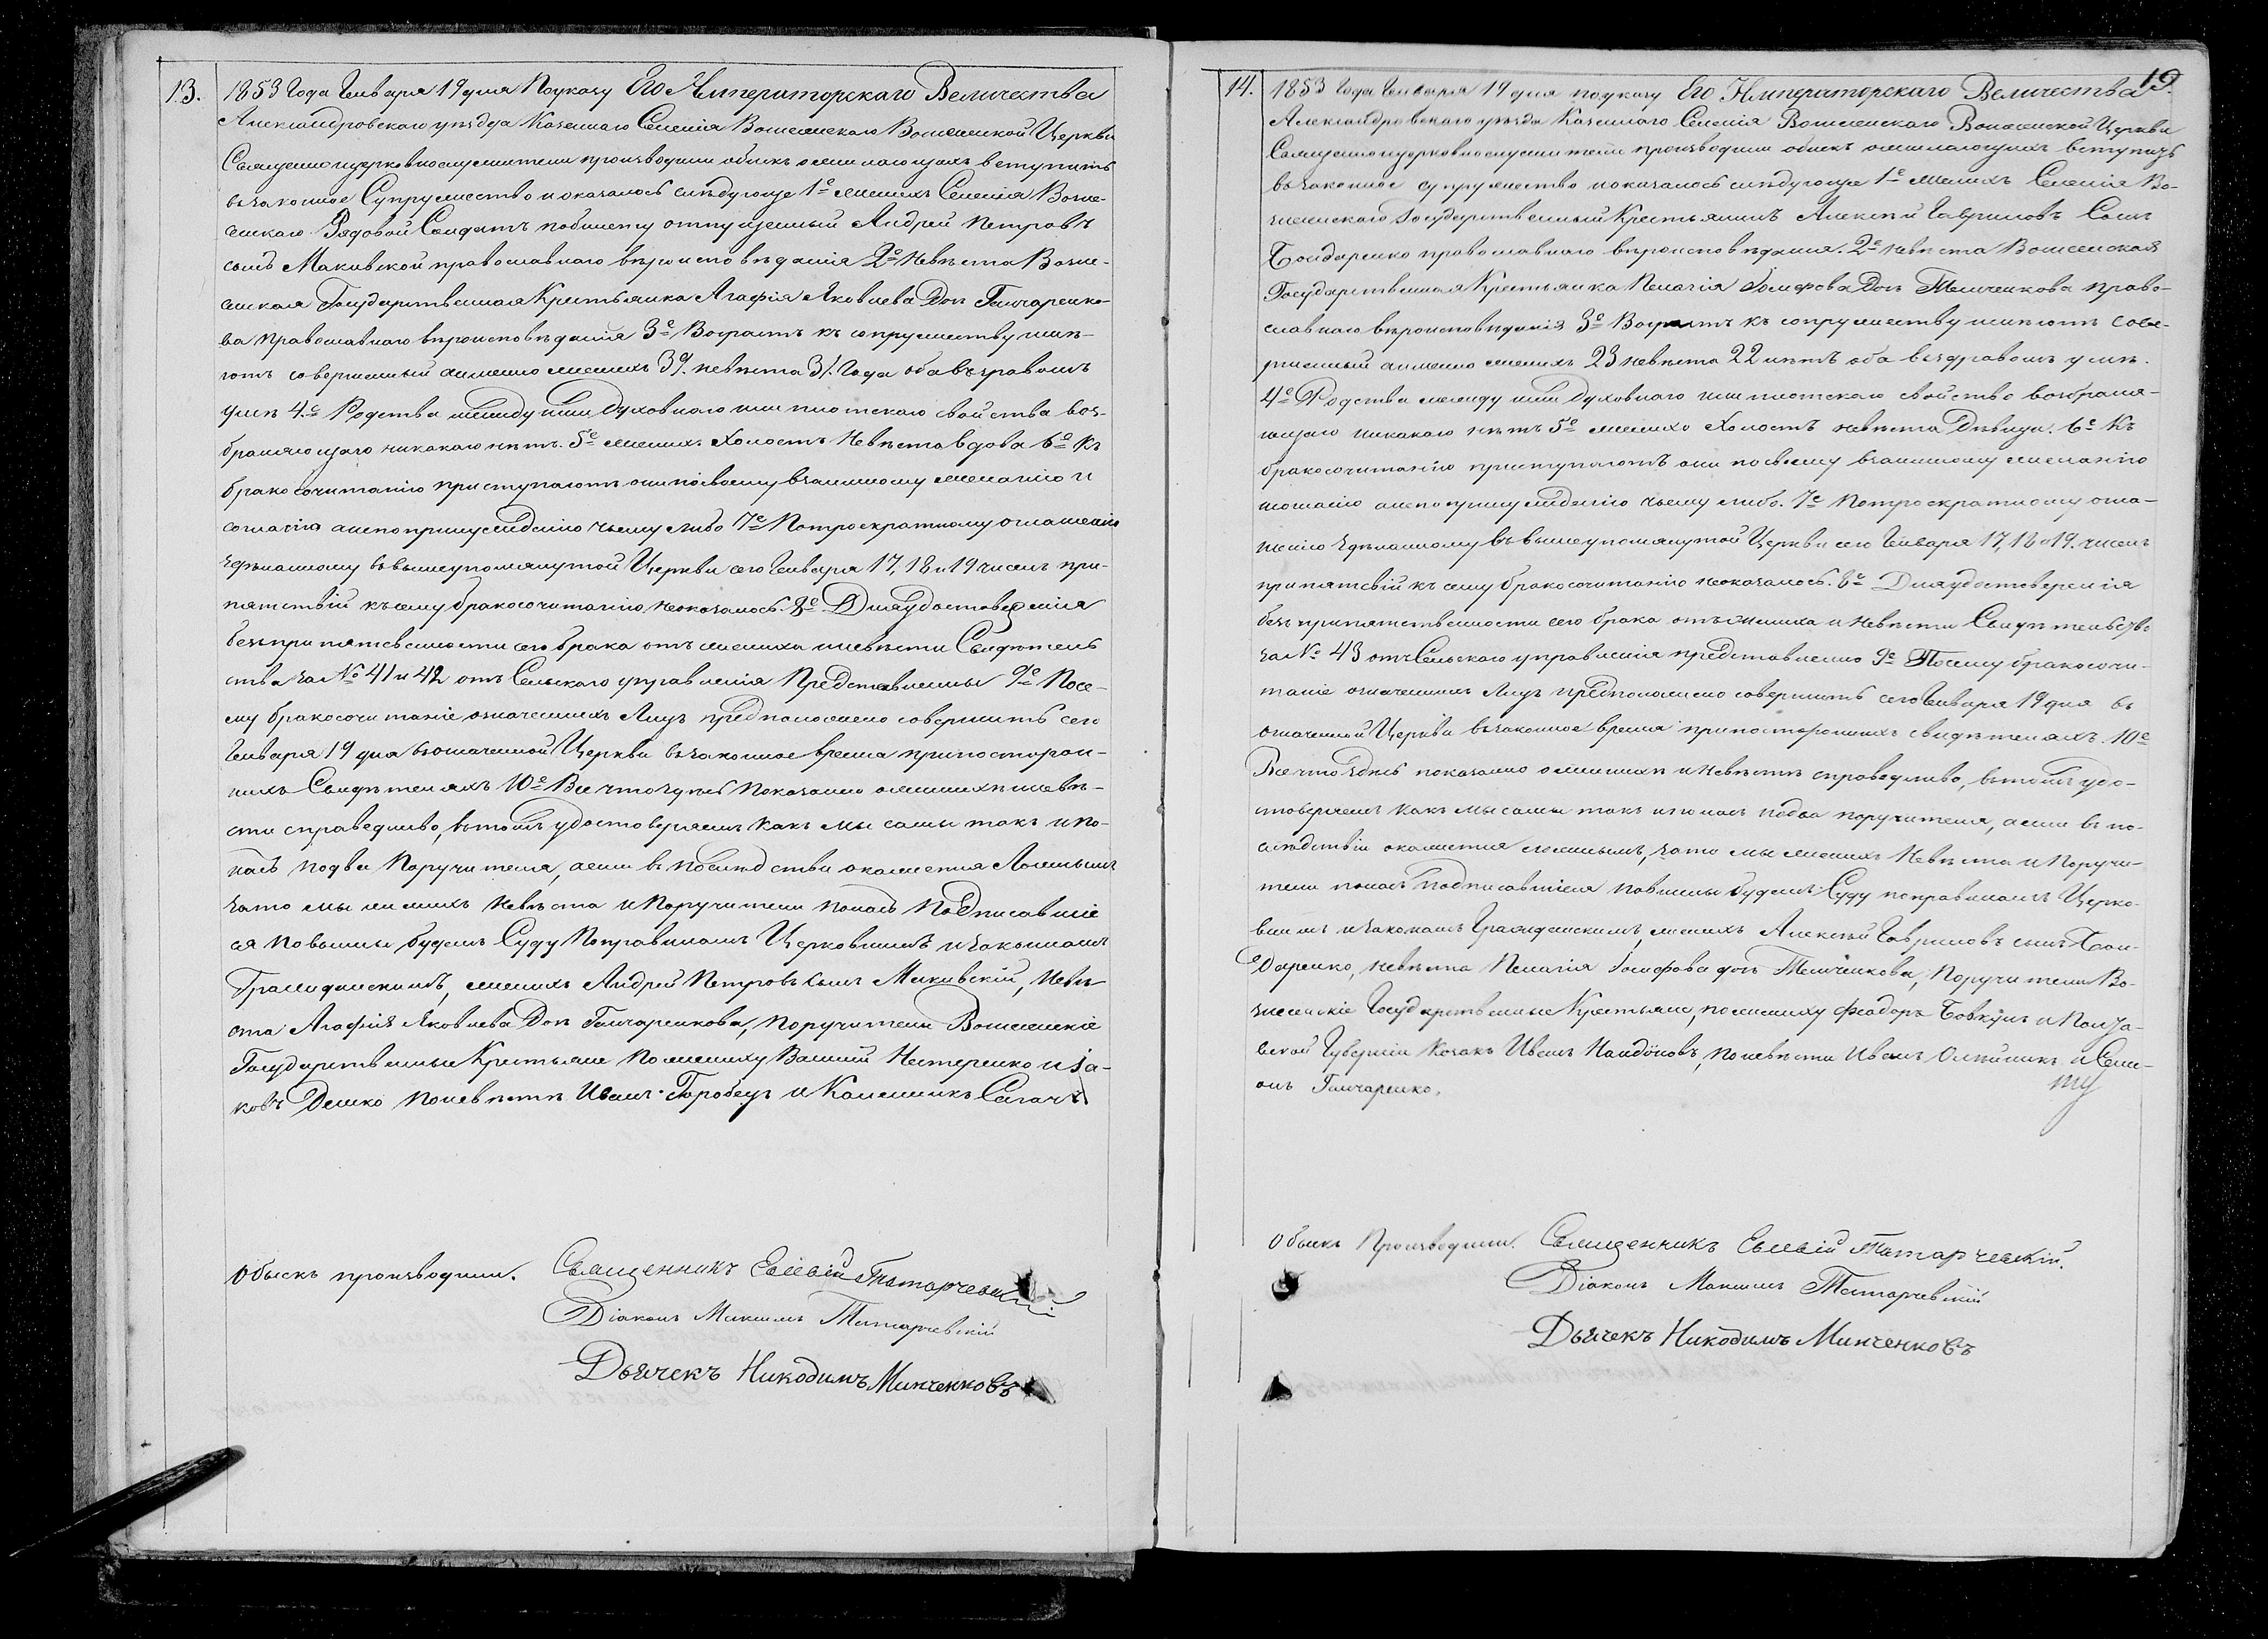 13.
1853 Года Генваря 19 дня По указу Его Императорскаго Величества
Александровскаго уѣзда Казеннаго Селенія Вознесенскаго Вознесенской Церкви
Священно и церковнослужители производили обыскъ о желающихъ вступить
въ законное Супружество и оказалось слѣдующе 1е Женихъ Селенія Возне-
сенскаго Рядовой Солдатъ по билету отпущенный Андрей Петровъ
сынъ Макивской православнаго вѣроисповѣданія 2е Невѣста Возне-
сенская Государственная Крестьянка Агафія Яковлева Дочь Гончаренко-
ва православнаго вѣроисповѣданія 3е Возрастъ къ сопружеству имѣ-
ютъ совершенный а именно женихъ невѣста 31. Года оба въ здравомъ
умѣ 4.е Родства между ими Духовнаго или плотскаго свойства воз-
браняющаго никакаго нѣтъ. 5е женихъ Холостъ Невѣста вдова 6е Къ
бракосочитанію приступаютъ они по своему взаимному желанію и
согласію а не по принужденію чьему либо 7е По троекратному оглашенію
здѣланному въ вышеупомянутой Церкви сего Генваря 17, 18 и 19 числъ при-
пятствій къ сему бракосочитанію неоказалось. 8е Для удостоверенія
безприпятсвенности сего брака отъ жениха и невѣсти Свидѣтель
ства за № 41 и 42 отъ Сельскаго управленія Представленны 9е Посе-
му бракосочитаніе означенныхъ Лицъ предположено совершить сего
Генваря 19 дня въ означенной Церкви въ законное время при посторон-
нихъ Свидѣтеляхъ 10е Все что здѣсь показанно о женихѣ и невѣ-
сти справедливо, въ томъ удостоверяемъ какъ мы самы такъ и по-
насъ подва Поручителя, а если въ послѣдствіи окажется Ложнымъ
зато мы женихъ невѣста и Поручители по насъ Подписавшіе
ся Повынны будемъ Суду По правиламъ Церковнымъ и законамъ
Гражданскимъ, женихъ Андрей Петровъ сынъ Макивскій, Невѣ
ста Агафія Яковлева Дочь Гончаренкова, поручители Вознесенскіе
Государственные Крестьяне По жениху Василій Нестеренко и Іа-
ковъ Дешко по невѣстѣ Иванъ Горобецъ и Калешикъ Сагачъ
Обыскъ производили.
Священникъ Евсевій Татарчевскій
Діаконъ Максимъ Татарчевскій
Дьячекъ Никодимъ Минченковъ
19.
14.
1853 Года Генваря 19 дня по указу Его Императорскаго Величества
Александровскаго уѣзда Казеннаго Селенія Вознесенскаго Вознесенской Церкви
Священно и церковнослужители производили обыскъ о желающихъ вступить
въ законное супружество и оказалось слѣдующе 1е Женихъ Селенія Во-
знесенскаго Государственный Крестьянинъ Алексѣй Гавриловъ Сынъ
Бондаренко православнаго вѣроисповѣданія. 2е Невѣста Вознесенская
Государственная Крестьянка Пелагія Іосифова Дочь Темченкова право-
славнаго вѣроисповѣданія 3е Возрастъ къ сопружеству имѣютъ сове-
ршенный а именно женихъ 23 невѣста 22 лѣтъ оба въ здравомъ умѣ.
4е Родства между ими Духовнаго или плотскаго свойства возбраня-
ющаго никакаго нѣтъ 5е женихъ Холостъ невѣста Дѣвица. 6е Къ
бракосочитанію приступаютъ они по своему взаимному желанію
и согласію а не по принужденію чьему либо. 7е По троекратному огла-
шенію здѣланному въ вышеупомянутой Церкви сего Генваря 17, 18 и 19. числъ
припятствій къ сему бракосочитанію неоказалось. 8е Для удостоверенія
безъприпятственности сего брака отъ жениха и невѣсти Свидѣтельство
за № 43 отъ Сельскаго управленія представленно 9е Посему бракосочи-
таніе означенныхъ Лицъ предположено совершить сего Генваря 19 дня въ
означенной Церкви въ законное время при постороннихъ свидѣтеляхъ. 10е
Все что здѣсь показанно о женихѣ и невѣстѣ справедливо, въ томъ удо-
стоверяемъ какъ мы самы такъ и по насъ подва поручителя, а если въ по-
слѣдствіи окажется ложнымъ, зато мы женихъ Невѣста и Поручи-
тели по насъ Подписавшіеся повинны будемъ Суду по правиламъ Церко-
внымъ и законамъ Гражданскимъ, женихъ Алексѣй Гавриловъ сынъ Бон-
Даренко, невѣста Пелагія Іосифова дочь Темченкова, Поручители Во-
знесенскіе Государственные Крестьяне, по жениху Феодоръ Бовкунъ и Полта-
вской Губерніи Козакъ Иванъ Найдёновъ, по невѣсти Иванъ Олѣйникъ и Семе-
онъ Гончаренко.
Обыскъ Производили.
Священникъ Евсевій Татарчевскій.
Діаконъ Максимъ Татарчевскій
Дьячекъ Никодимъ Минченковъ